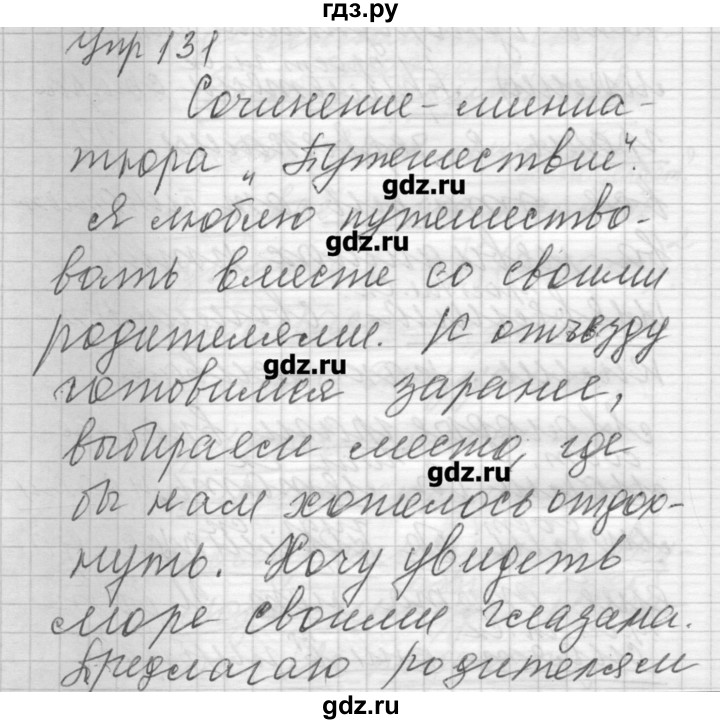 гдз.ру
Упр 131
Сочинение-миниа-
тюра „Путешествие“.
gdz.ru
Я люблю путешество-
gdz.ru
вать вместе со своими
родителями. К отъезду
gdz.ru
готовимся заранее,
выбираем место, где
gdz.ru
бы нам хотелось отдох-
нуть. Хочу увидеть
море своими глазами.
Предлагаю родителям
gdz.ru